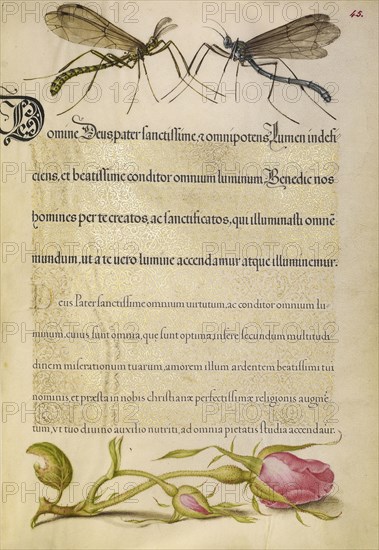 45.
Domine Deus pater sanctissime, & omnipotens, Lumen indefi-
ciens, et beatissime conditor omnium luminum. Benedic nos
homines per te creatos, ac sanctificatos, qui illuminasti omnē
mundum, ut a te vero lumine accendamur atque illuminemur.
Deus Pater sanctissime omnium virtutum, ac conditor omnium lu-
minum, cuius sunt omnia, que sunt optima, insere secundum multitudi
dinem miserationum tuarum, amorem illum ardentem beatissimi tui
nominis, et præsta in nobis christianæ perfectissimæ religionis augmē
tum, vt tuo diuino auxilio nutriti, ad omnia pietatis studia accendaur.
PHOTO12